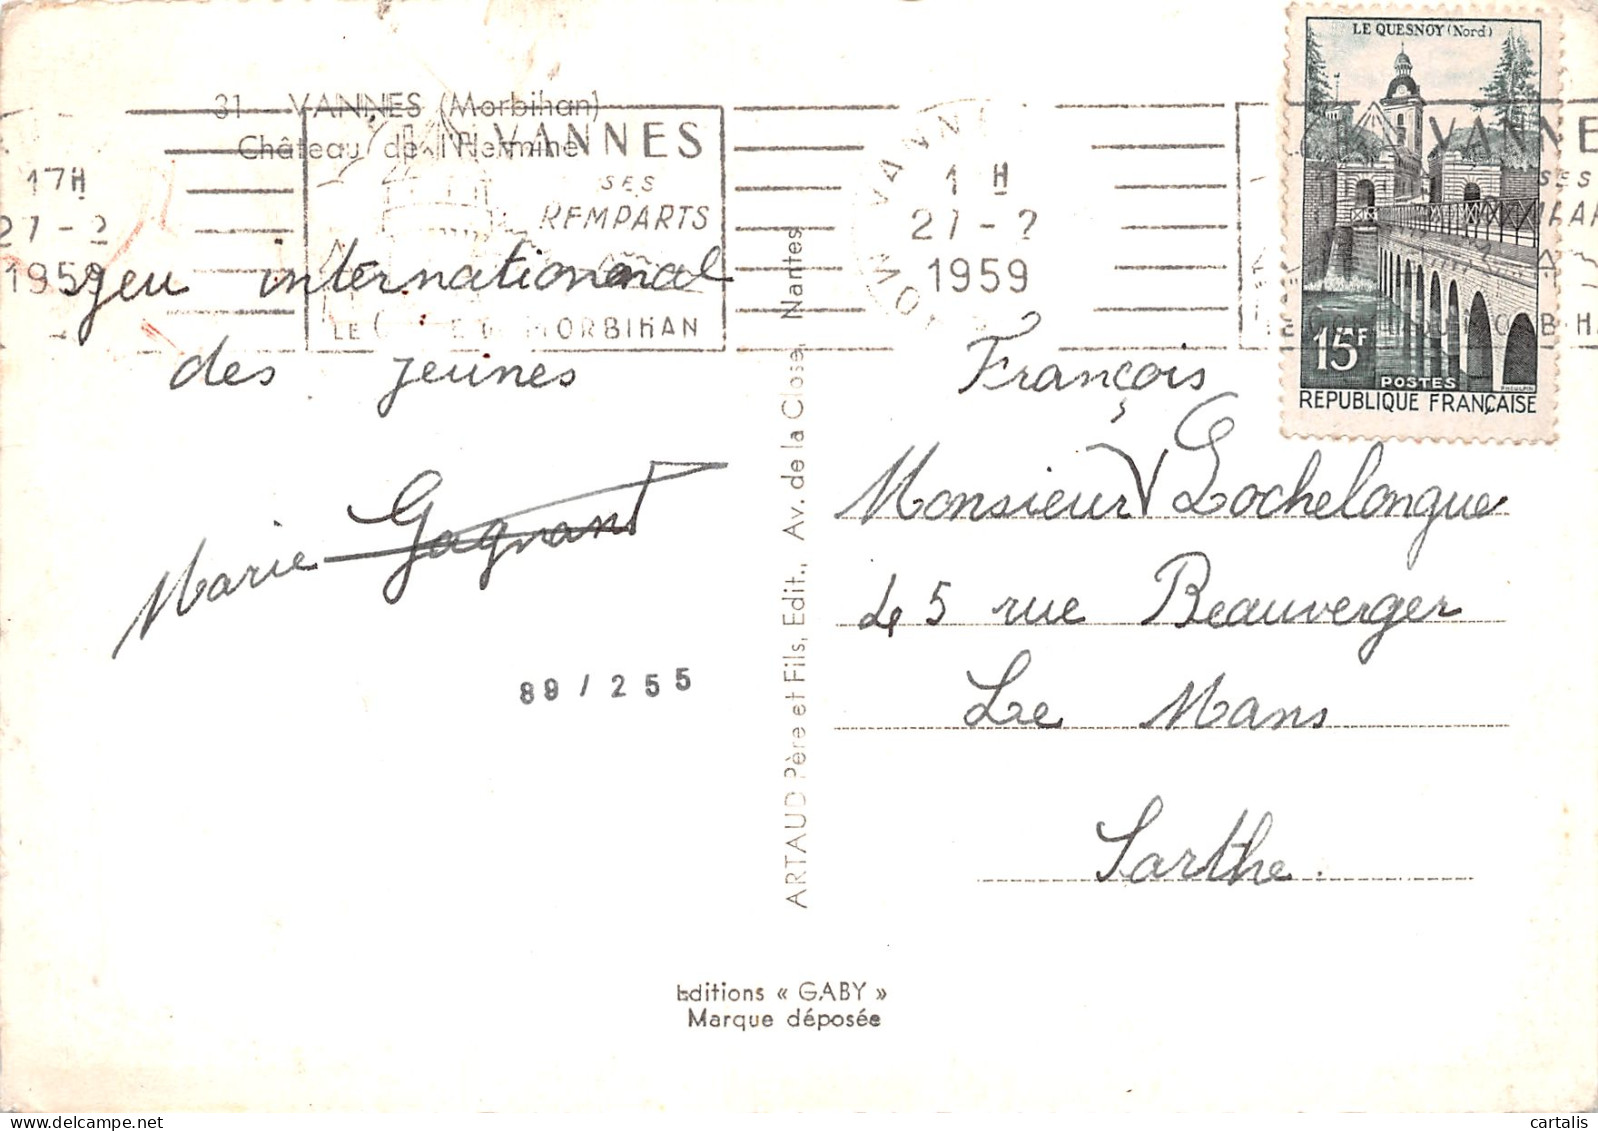 31 - VANNES (Morbihan)
Château de l'Hermine
VANNES
SES
REMPARTS
LE
MORBIHAN
17H
27 - 2
1959
jeu international
des jeunes
Marie Gagnant
89 / 255
ARTAUD Père et Fils, Edit., Av. de la Close, Nantes
VANNES
1 H
27 - 2
1959
LE QUESNOY (Nord)
15F
POSTES
REPUBLIQUE FRANÇAISE
VANNE
SES
François
Monsieur Lochelongue
45 rue Beauverger
Le Mans
Sarthe.
Editions « GABY »
Marque déposée
cartalis